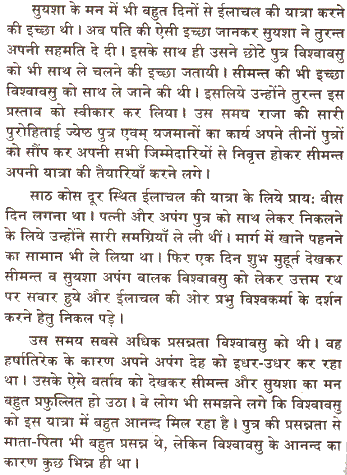 सुयशा के मन में भी बहुत दिनों से ईलाचल की यात्रा करने
की इच्छा थी। अब पति की ऐसी इच्छा जानकर सुयशा ने तुरन्त
अपनी सहमति दे दी। इसके साथ ही उसने छोटे पुत्र विश्वावसु
को भी साथ ले चलने की इच्छा जतायी। सीमन्त की भी इच्छा
विश्वावसु को साथ ले जाने की थी। इसलिये उन्होंने तुरन्त इस
प्रस्ताव को स्वीकार कर लिया। उस समय राजा की सारी
पुरोहिताई ज्येष्ठ पुत्र एवम् यजमानों का कार्य अपने तीनों पुत्रों
को सौंप कर अपनी सभी जिम्मेदारियों से निवृत्त होकर सीमन्त
अपनी यात्रा की तैयारियाँ करने लगे।
साठ कोस दूर स्थित ईलाचल की यात्रा के लिये प्रायः बीस
दिन लगना था। पत्नी और अपंग पुत्र को साथ लेकर निकलने
के लिये उन्होंने सारी समग्रियाँ ले ली थीं। मार्ग में खाने पहनने
का सामान भी ले लिया था। फिर एक दिन शुभ मुहूर्त देखकर
सीमन्त व सुयशा अपंग बालक विश्वावसु को लेकर उत्तम रथ
पर सवार हुये और ईलाचल की ओर प्रभु विश्वकर्मा के दर्शन
करने हेतु निकल पड़े।
उस समय सबसे अधिक प्रसन्नता विश्वावसु को थी। वह
हर्षातिरेक के कारण अपने अपंग देह को इधर-उधर कर रहा
था। उसके ऐसे वर्ताव को देखकर सीमन्त और सुयशा का मन
बहुत प्रफुल्लित हो उठा। वे लोग भी समझने लगे कि विश्वावसु
को इस यात्रा में बहुत आनन्द मिल रहा है। पुत्र की प्रसन्नता से
माता-पिता भी बहुत प्रसन्न थे, लेकिन विश्वावसु के आनन्द का
कारण कुछ भिन्न ही था।